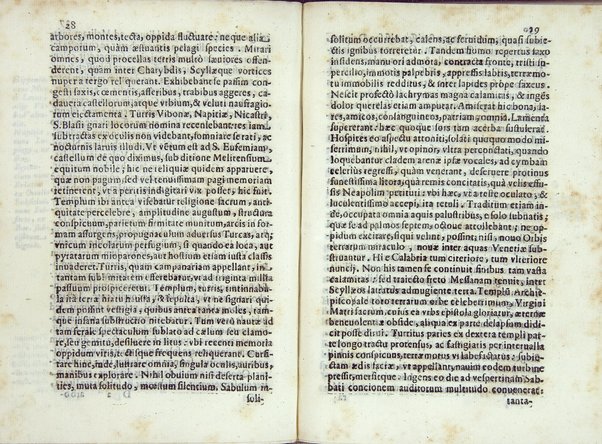 28
arbores, montes, tecta, oppida fluctuare: neque alia
camporum, quàm æstuantis pelagi species. Mirari
omnes, quod procellas terris multò sæuiores offen-
derent, quàm inter Charybdis, Scyllæque vortices
nupera tergo reliquerant. Exhibebant se passim con-
gesti saxis, cæmentis, asseribus, trabibus aggeres, ca-
dauera castellorum, atque vrbium, & veluti naufragio-
rum eiectamenta. Turris Vibonæ, Napitiæ, Nicastri,
S. Blasij gnari locorum nomina recensebant: res iam
subtractas ex oculis non videbant, somniare se rati, ac
nocturnis laruis illudi. Ve vērum est ad S. Eufemiam,
castellum de quo diximus, sub ditione Melitensium
equitum, nobile; hic ne reliquiæ quidem apparuere,
quæ non paganum sed vel tenuissimam pagi memoriam
retinerent, vt à peritis indigitari vix posset, hic fuit.
Templum ibi antea visebatur religione sacrum, anti-
quitate percelebre, amplitudine augustum, structura
conspicuum, parietum firmitate munitum, arcis in for-
mam assurgens, propugnaculum aduersus Turcas, atq;
vnicum incolarum perfugium, si quando ea loca, aut
pyratarum mioparones, aut hostium etiam iusta classis
inuaderet. Turris, quam campanariam appellant, in
tantam sublimitatem efferebatur, vt ad triginta millia
passuum prospiceret. Templum, turris, tintinnabu-
la ita terræ hiatu hausta, & sepulta, vt ne signari qui-
dem possint vestigia, quibus antea tanta moles, tam
que insana substructio nitebatur. Tum verò nautæ ad
tam ferale spectaculum sublato ad cælum seu clamo-
re, seu gemitu, desiluere in litus: vbi recenti memoria
oppidum viris, tectisque frequens reliquerant. Cursi-
tare hinc, inde, lustrare omnia, singula oculis, auribus,
manibus explorare. Nihil obuium nisi deserta plani-
ties, muta solitudo, mœstum silentium. Sabulum in-
soli-
29
solitum occurrebat, calens, ac feruidum, quasi subie-
ctis ignibus torreretur. Tandem homo repertus saxo
insidens, manu ori admota, contracta fronte, tristi su-
percilio, immotis palpebris, appressis labris, terræmo-
tu immobilis redditus, & inter lapides propè saxeus.
Nescit profectò lacrymas magna calamitas, & angens
dolor querelas etiam amputat. Amiserat hic bona, la-
res, amicos, coniugem, patriam, omnia. Lamensa
superstent hæc quoque sors tam acerba sustulerat.
Hospites eò aspectu attoniti, solati quoquo modo mi-
serrimum, nihil, vt opinor, vltra percontati, quando
loquebantur cladem arenæ ipsæ vocales, ad cymbam
celerius regressi, quàm venerant, deseruere protinus
funestissima litora, quā remis concitatis, quà velis effu-
sis Neapolim petituri: vbi hæc, vt à teste oculato, &
luculentissimo accepi, ita retuli. Traditum etiam in-
de, occupata omnia aquis palustribus, e solo subnatis;
quæ se ad palmos septem, octoue attollebant; ne op-
pidum excitari, siqui vellent, possint, nisi, nouo Orbis
terrarum miraculo, nouæ inter aquas Venetiæ sub-
stituantur. Hi è Calabria tum citeriore, tum vlteriore
nuncij. Non his tamen se continuit finibus tam vasta
calamitas: sed traiecto freto Messanam tenuit, inter
Scyllæos latratus ad mugiente terra. Templū Archie-
piscopale toto terrarum orbe celeberrimum, Virgini
Matri sacrum, cuius ea vrbs epistola gloriatur, æternæ
beneuolentiæ obside, aliqua ex parte delapsum didi-
cit posse diuti. Turritus paries ex dextera templi pat-
te longo tractu protensus, ac fastigiatis per interualla
pinnis conspicuus, terræ motus vi labefactatus: subin-
ctam ædis faciæ, vt appellant, nauim eodem turbine
pressit, mersitque. Ingens eo die ad vespertinam Sab-
bati concionem auditorum multitudo conuenerat:
tanta-